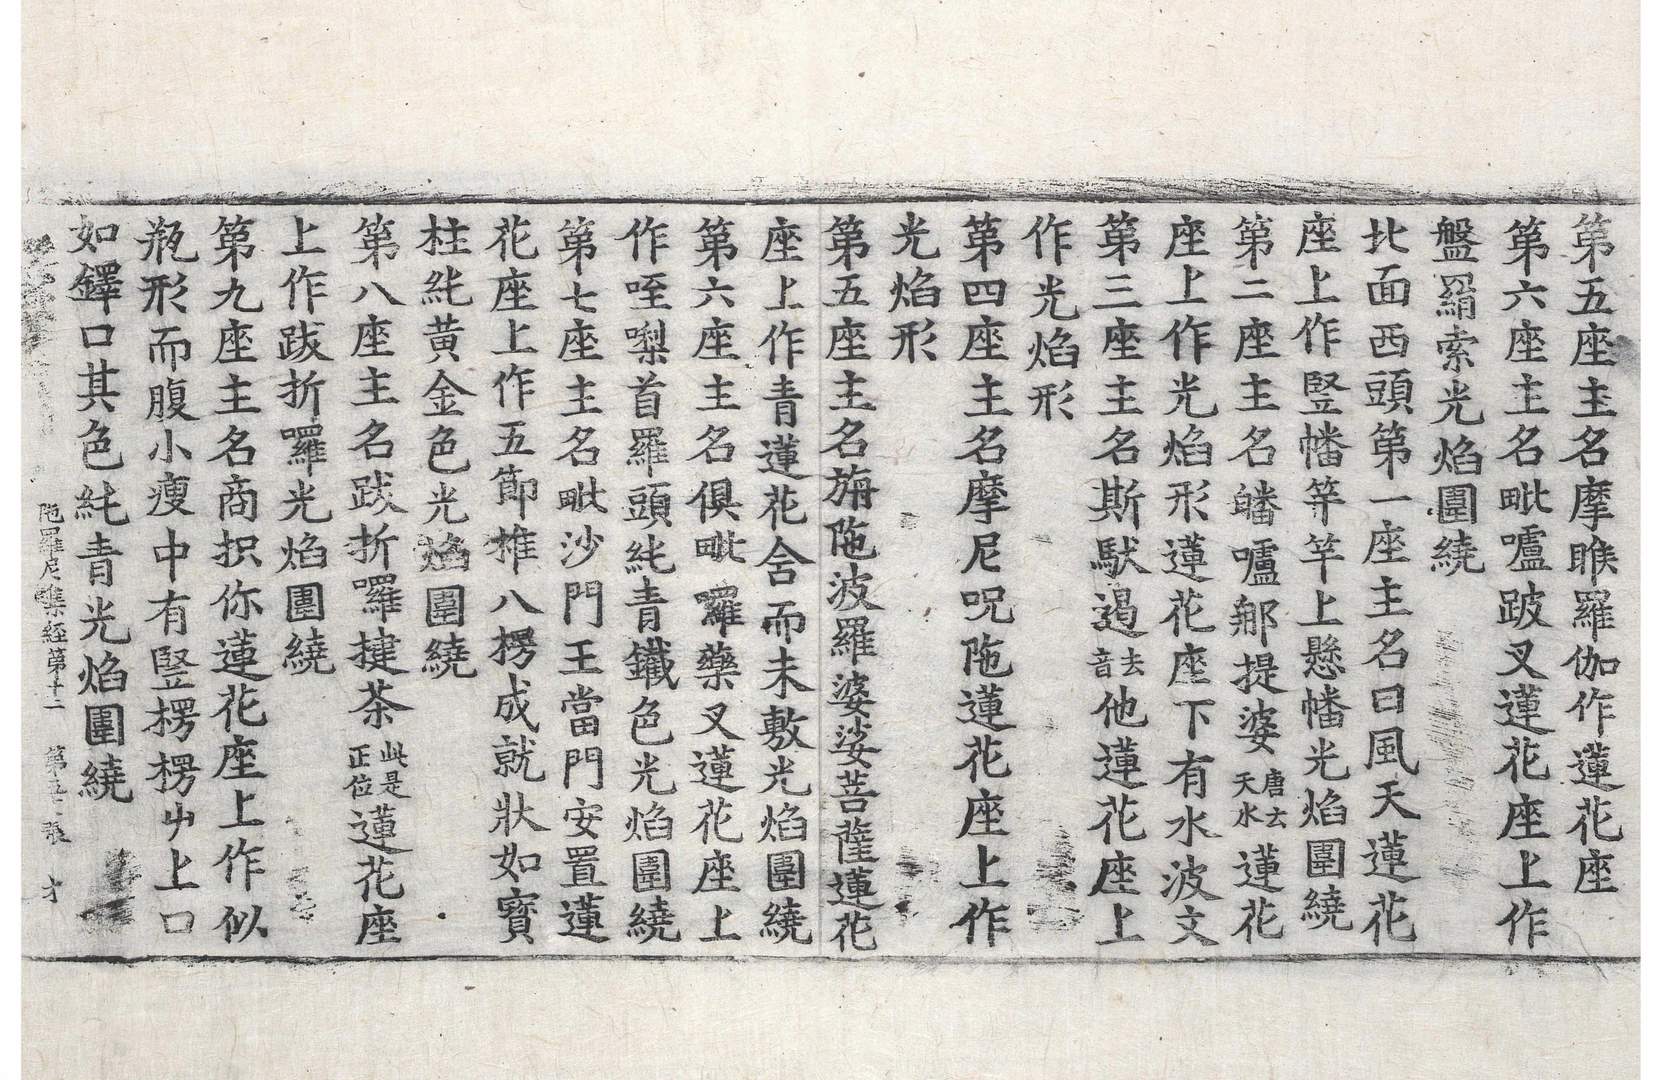 第五座主名摩睺羅伽作蓮花座
第六座主名毗嚧跛叉蓮花座上作
盤羂索光焰圍繞
北面西頭第一座主名曰風天蓮花
座上作竪幡竿竿上懸幡光焰圍繞
第二座主名皤嚧郍提婆唐云天水蓮花
座上作光焰形蓮花座下有水波文
第三座主名斯䭾遏去音他蓮花座上
作光焰形
第四座主名摩尼呪陁蓮花座上作
光焰形
第五座主名旃陁波羅婆娑菩薩蓮花
座上作青蓮花含而未敷光焰圍繞
第六座主名俱毗囉藥叉蓮花座上
作咥㗚首羅頭純青鐵色光焰圍繞
第七座主名毗沙門王當門安置蓮
花座上作五節推八楞成就狀如寳
柱純黃金色光焰圍繞
第八座主名跋折囉揵茶此是正位蓮花座
上作跋折囉光焰圍繞
第九座主名商抧你蓮花座上作似
瓶形而腹小瘦中有竪楞楞中上口
如鐸口其色純青光焰圍繞
陁羅尼集經第十二 第 張 才